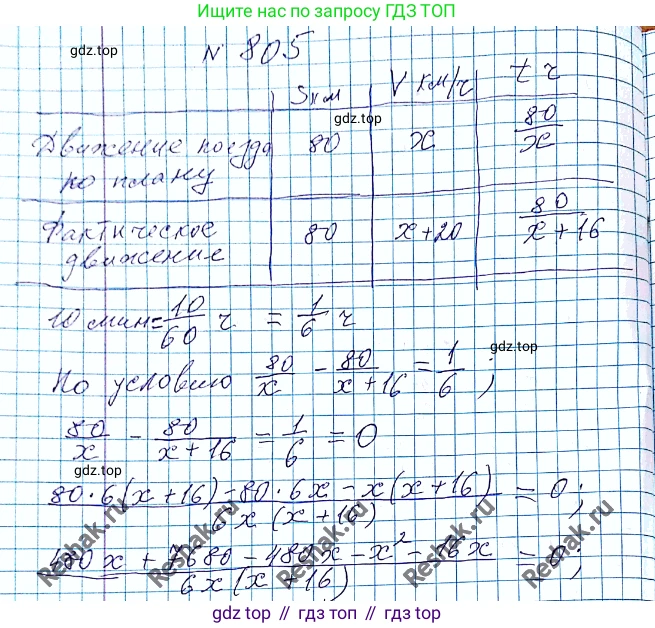 Ищите нас по запросу ГДЗ ТОП
gdz.top
N 805
S км V км/ч t ч
gdz.top
Движение поезда по плану 80 x 80/x
Фактическое движение 80 x+20 80/(x+16)
10 мин = 10/60 ч = 1/6 ч
gdz.top
По условию 80/x - 80/(x+16) = 1/6 ;
80/x - 80/(x+16) = 1/6 = 0
gdz.top
(80·6(x+16) - 80·6x - x(x+16))/(6x(x+16)) = 0;
(480x + 7680 - 480x - x² - 16x)/(6x(x+16)) = 0;
Reshak.ru Reshak.ru Reshak.ru Reshak.ru
gdz top // гдз топ // gdz top // гдз топ